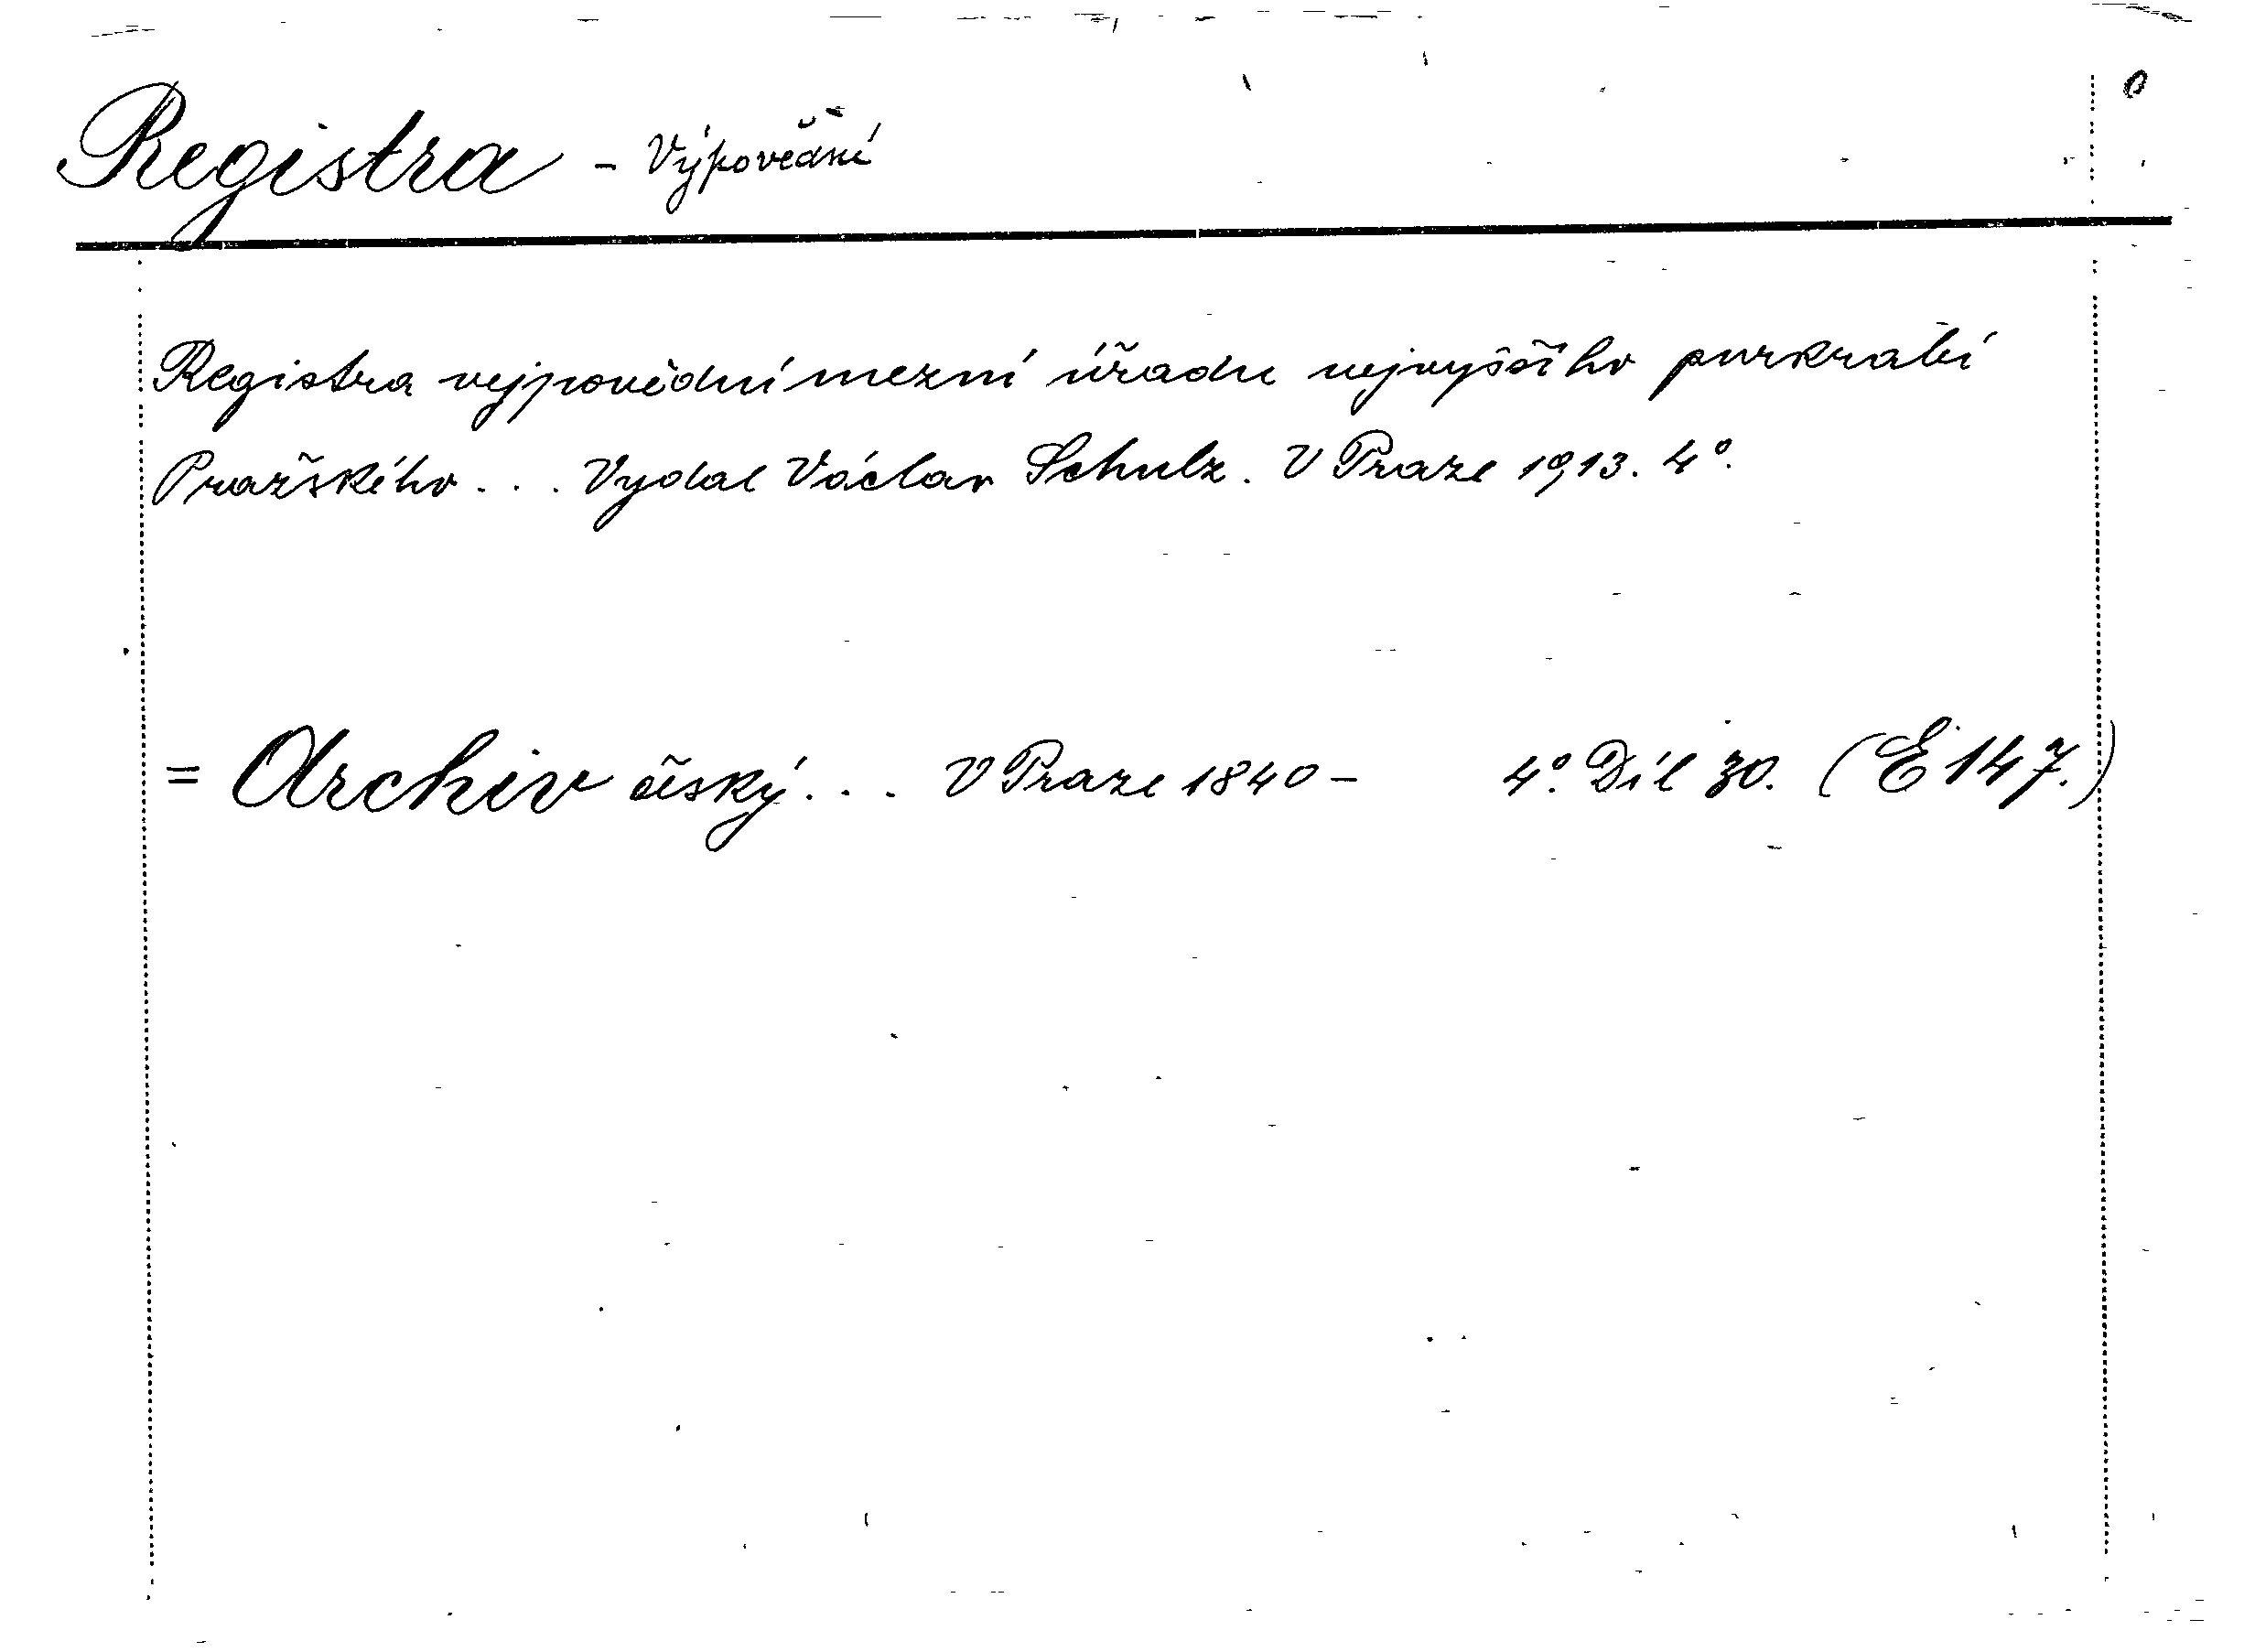 Registra - Výpovědní
Registra vejpovědní mezní úřadu nejvyššího purkrabí
Pražského... Vydal Václav Schulz. V Praze 1913. 4°.
= Archiv český... V Praze 1840- 4°. Díl 30. (E 147.)